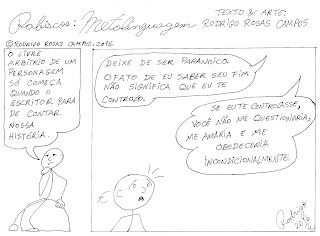 Rabiscos: Metalinguagem
TEXTO & ARTE:
RODRIGO ROSAS CAMPOS
©RODRIGO ROSAS CAMPOS, 2016.
O LIVRE
ARBÍTRIO DE UM
PERSONAGEM
SÓ COMEÇA
QUANDO O
ESCRITOR PARA
DE CONTAR
NOSSA
HISTÓRIA.
DEIXE DE SER PARANOICA
O FATO DE EU SABER SEU FIM
NÃO SIGNIFICA QUE EU TE
CONTROLO.
SE EU TE CONTROLASSE,
VOCÊ NÃO ME QUESTIONARIA,
ME AMARIA E ME
OBEDECERIA
INCONDICIONALMENTE.
Rodrigo
2016